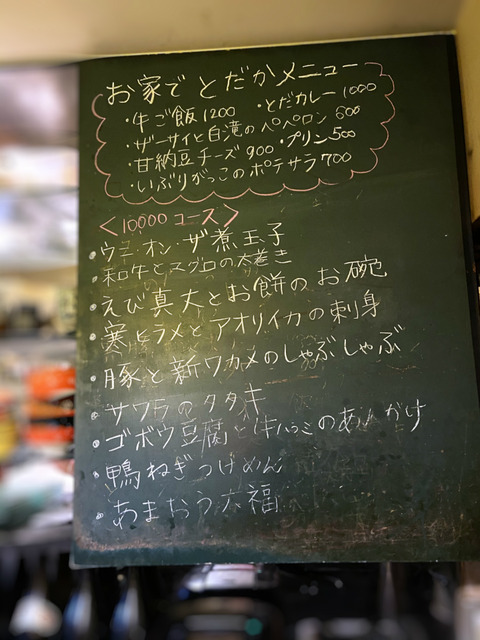 お家で とだかメニュー
・牛ご飯 1200 ・とだカレー 1000
・ザーサイと白滝のペペロン 600
・甘納豆チーズ 900 ・プリン 500
・いぶりがっこのポテサラ 700
<10000コース>
・ウニ・オン・ザ・煮玉子
・和牛とマグロの太巻き
・えび真丈とお餅のお碗
・寒ヒラメとアオリイカの刺身
・豚と新ワカメのしゃぶしゃぶ
・サワラのタタキ
・ゴボウ豆腐と牛ハラミのあんかけ
・鴨ねぎつけめん
・あまおう大福